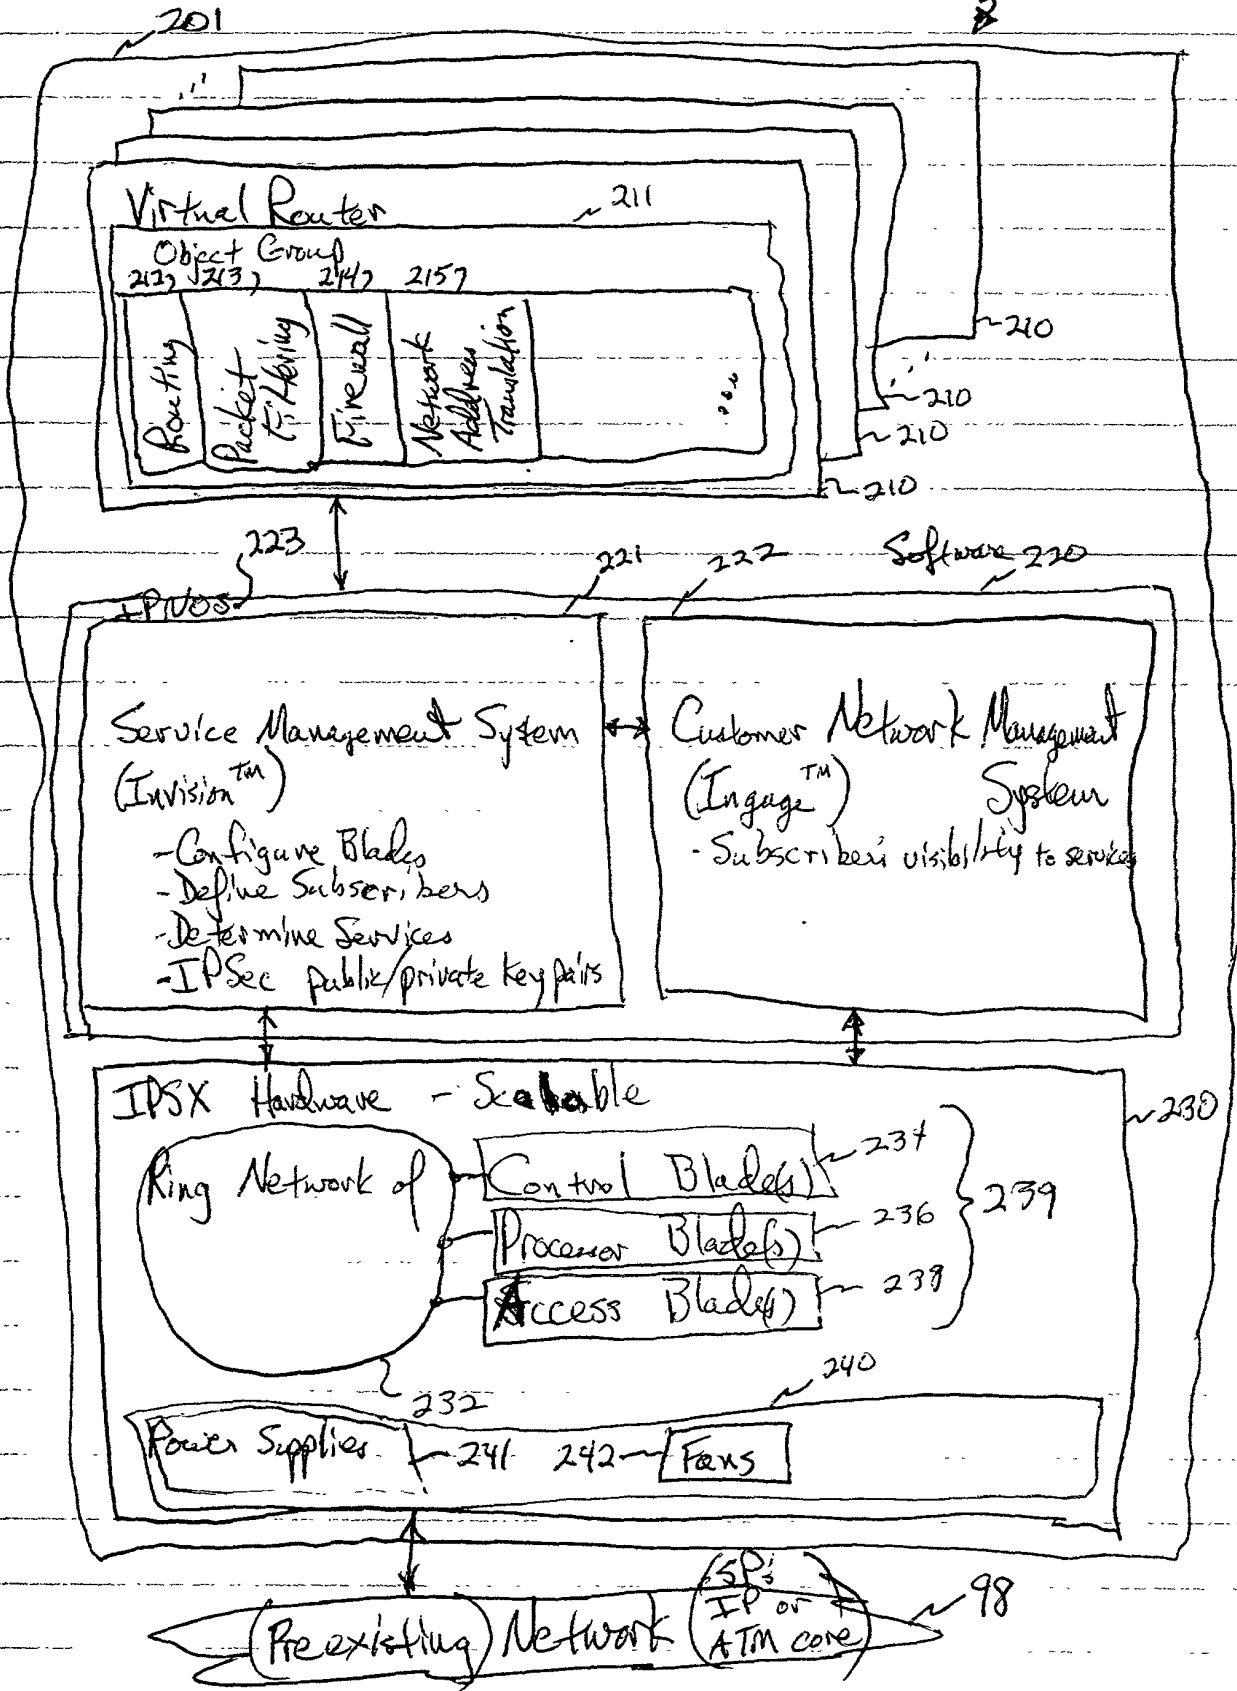 2
201
Virtual Router
211
Object Group
212 213 214 215
Routing
Packet
Filtering
Firewall
Network
Address
Translation
...
210
210
210
210
223
221
222
Software 220
IPNOS
Service Management System
(Invision™)
-Configure Blades
-Define Subscribers
-Determine Services
-IPSec public/private key pairs
Customer Network Management
(Ingage™) System
- Subscriber's visibility to services
IPSX Hardware - Scalable
230
Ring Network of
Control Blade(s)
234
Processor Blade(s)
236
Access Blade(s)
238
239
232
240
Power Supplies
241
242
Fans
(Preexisting) Network
(SP's
IP or
ATM core)
98